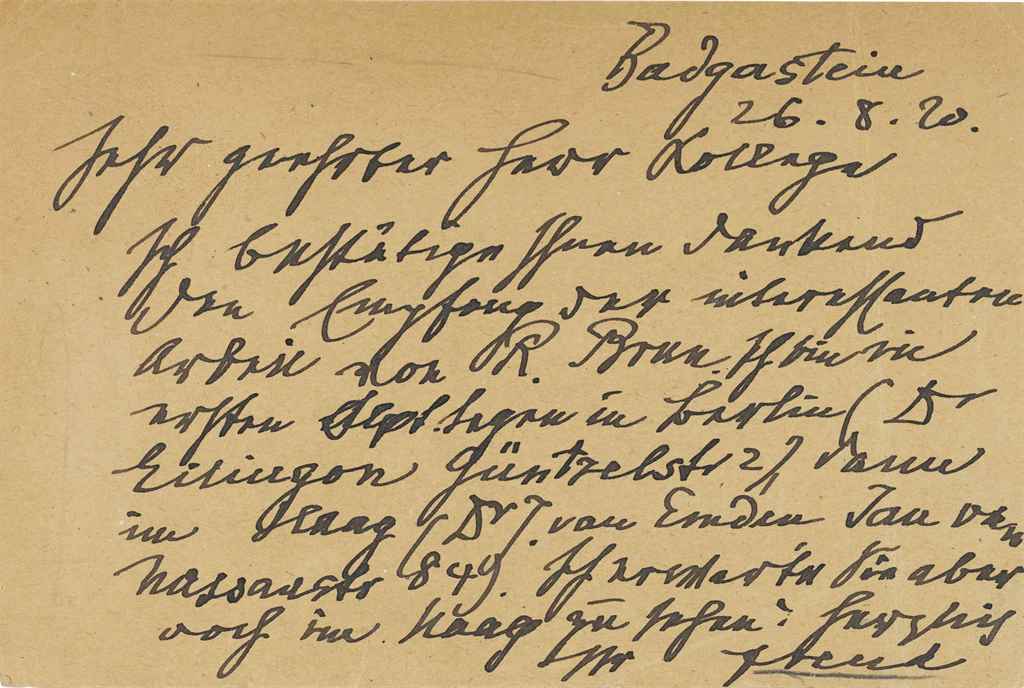 Badgastein
26. 8. 20.
Sehr geehrter Herr Kollege
Ich bestätige Ihnen dankend
den Empfang der interessanten
Arbeit von R. Brun. Ich bin in
ersten Sept.tagen in Berlin (Dr
Eitingon Güntzelstr 2), dann
im Haag (Dr J. van Emden Jan van
Nassaustr 84). Ich erwarte Sie aber
noch im Haag zu sehen? Herzlich
Ihr Freud